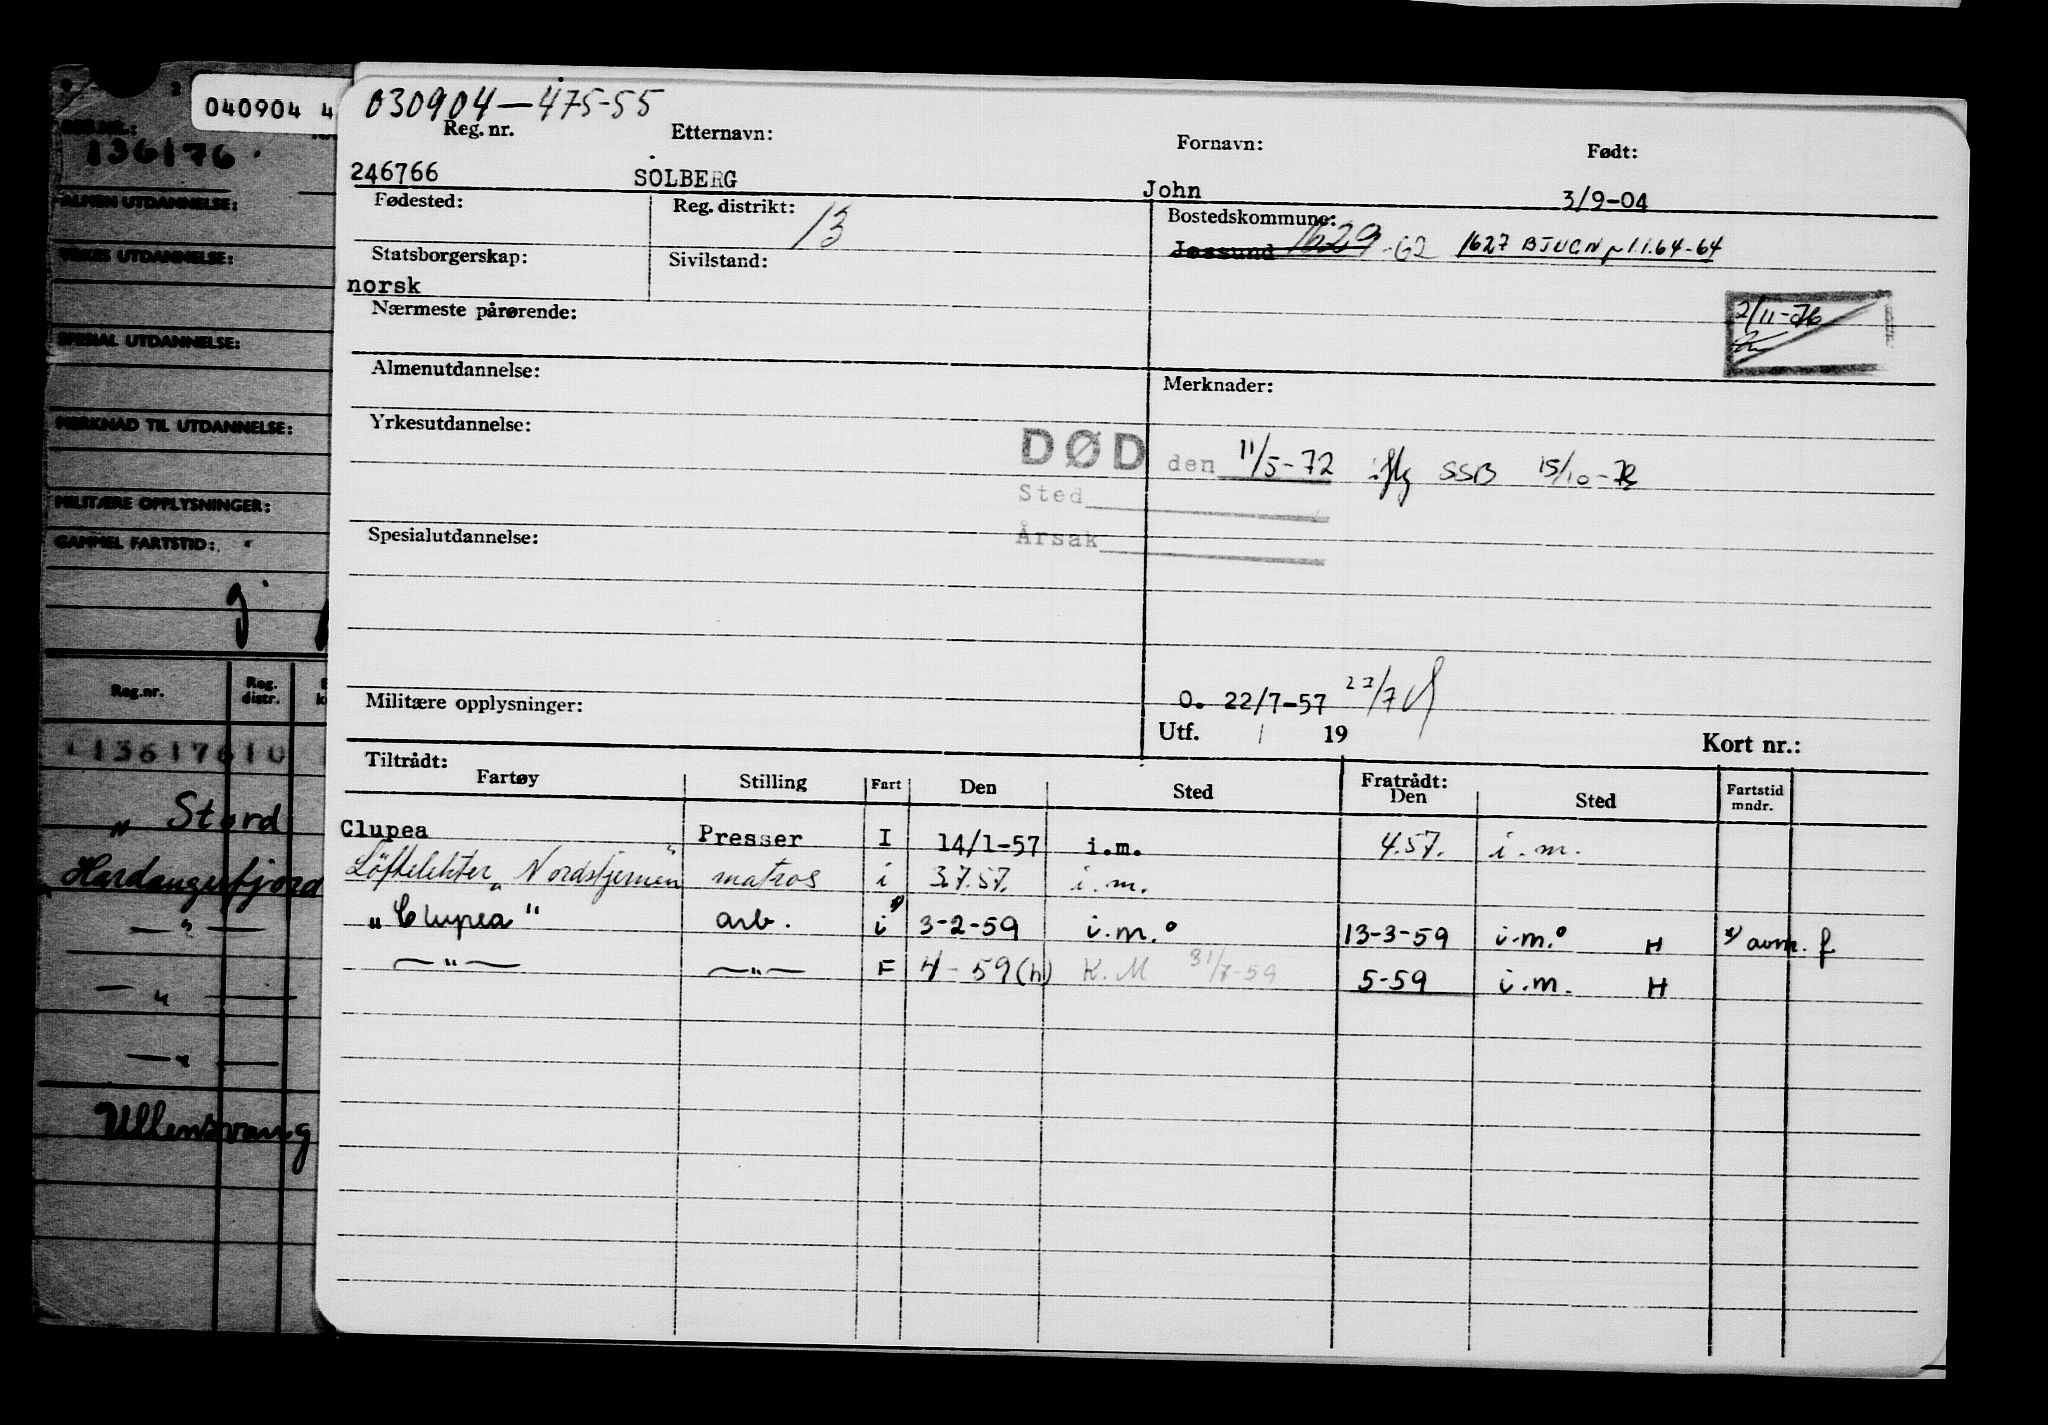 040904 4
136176
ALMEN UTDANNELSE:
YRKES UTDANNELSE:
SPESIAL UTDANNELSE:
MERKNAD TIL UTDANNELSE:
MILITÆRE OPPLYSNINGER:
GAMMEL FARTSTID:
Reg.nr. Reg. distr.
Stord
Hardangerfjord
— " —
— " —
— " —
Ullensvang
030904—475-55
Reg. nr. Etternavn: Fornavn: Født:
246766 SOLBERG John 3/9-04
Fødested: Reg. distrikt: 13 Bostedskommune:
Jøssund 1629 -62 1627 BJUGN 1.1.64-64
Statsborgerskap: Sivilstand:
norsk
Nærmeste pårørende: 2/11-76
Almenutdannelse: Merknader:
Yrkesutdannelse:
DØD den 11/5-72 iflg SSB 15/10-
Sted
Årsak
Spesialutdannelse:
Militære opplysninger: O. 22/7-57 22/7
Utf. / 19 Kort nr.:
Tiltrådt: Fratrådt:
Fartøy Stilling Fart Den Sted Den Sted Fartstid mndr.
Clupea Presser I 14/1-57 i.m. 4.57. i.m.
Løftelekter "Nordstjernen" matros i 3.7.57. i.m.
"Clupea" arb. i x) 3-2-59 i.m.° 13-3-59 i.m.° H x) avm. f.
— " — — " — F 4-59(h) K.M 31/7-59 5-59 i.m. H